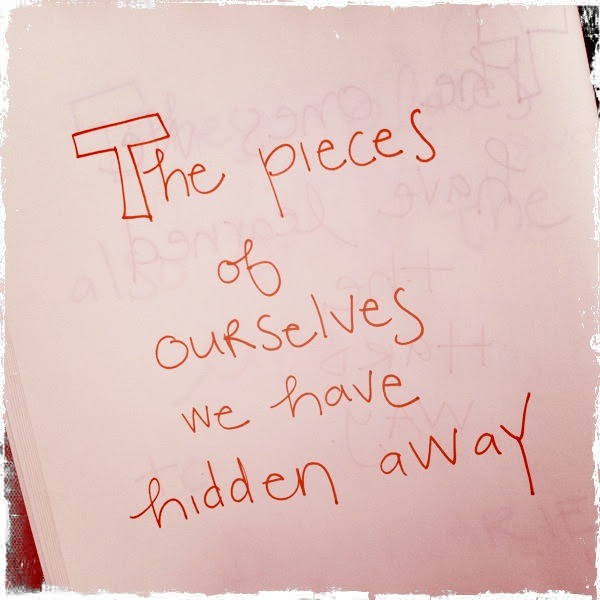 The pieces
of
ourselves
we have
hidden away